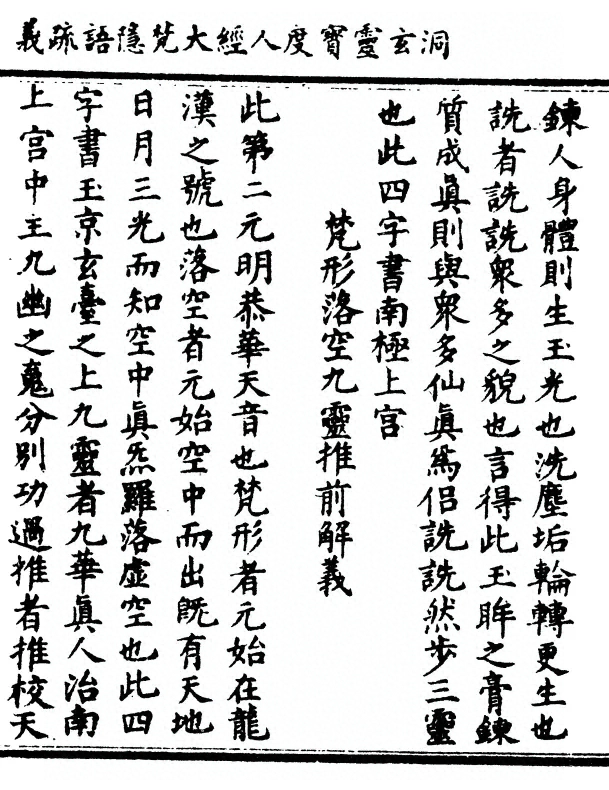 洞玄靈寶度人經大梵隱語疏義
鍊人身體則生玉光也洗塵垢輪轉更生也
詵者詵詵衆多之貌也言得此玉眸之膏鍊
質成眞則與衆多仙眞爲侶詵詵然步三靈
也此四字書南極上宫
梵形落空九靈推前解義
此第二元明恭華天音也梵形者元始在龍
漢之號也落空者元始空中而出旣有天地
日月三光而知空中眞炁羅落虛空也此四
字書玉京玄臺之上九靈者九華眞人治南
上宫中主九幽之䰟分别功過推者推校天